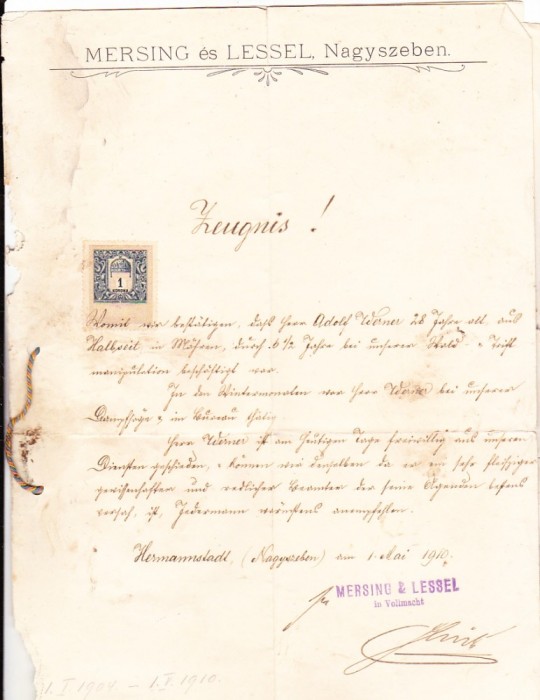 MERSING és LESSEL, Nagyszeben.
Zeugnis !
1
Womit wir bestätigen, daß Herr Adolf Werner 28 Jahre alt, aus
in Mähren, durch 6 1/2 Jahre bei unserer Wald- & Trift-
manipulation beschäftigt war.
In den Wintermonaten war Herr Werner bei unserer
Dampfsäge & im Bureau thätig.
Herr Werner ist am heutigen Tage freiwillig aus unseren
Diensten geschieden, & können wir denselben da er ein sehr fleissiger
gewissenhafter und redlicher Beamter der seine Agenden bestens
versah, ist, Jedermann wärmstens anempfehlen.
Hermannstadt, (Nagyszeben) am 1. Mai 1910.
MERSING & LESSEL
in Vollmacht
1. I 1904 – 1. V. 1910.